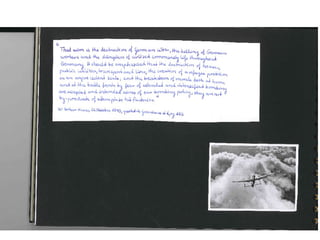 "That aim is the destruction of German cities, the killing of German
workers and the disruption of civilized community life throughout
Germany. It should be emphasized that the destruction of houses,
public utilities, transport and lives, the creation of a refugee problem
on an unprecedented scale, and the breakdown of morale both at home
and at the battle fronts by fear of extended and intensified bombing
are accepted and intended aims of our bombing policy, they are not
by-products of attempts to hit factories."